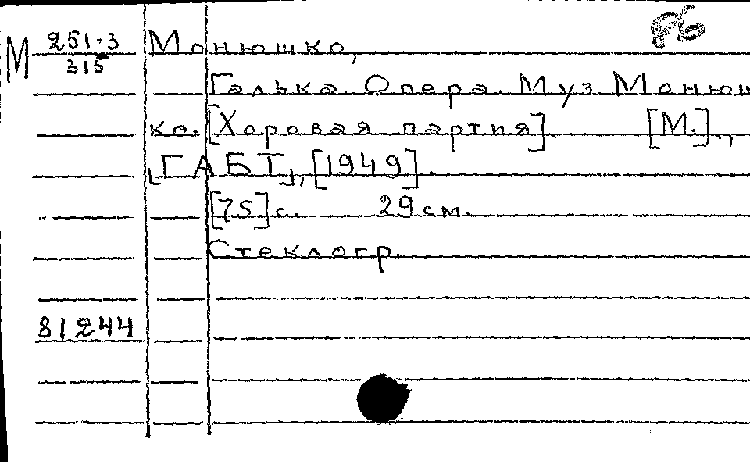 М 251-3 Монюшко,
315
Галька. Опера. Муз. Монюш
ко. [Хоровая партия]. [М.],
[ГАБТ], [1949].
[75] с. 29 см.
Стеклогр.
81244